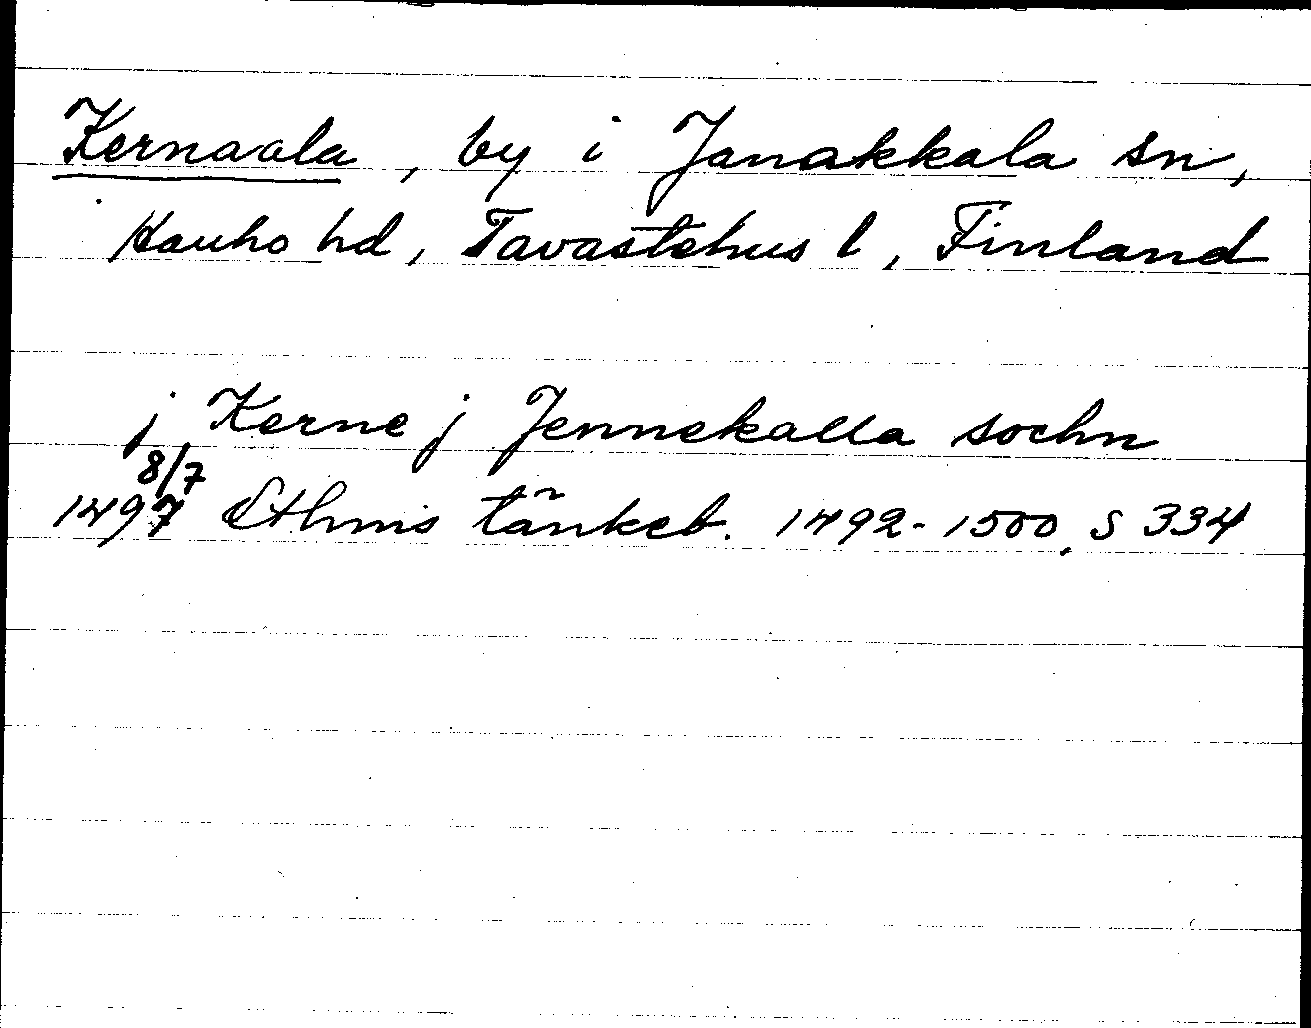 Kernaala, by i Janakkala sn,
Hauho hd, Tavastehus l, Finland
j Kerne j Jennekalla sochn
8/7
1497 Sthms tänkeb. 1492-1500, s 334